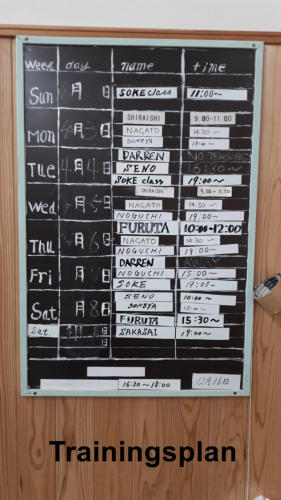 Week day name time
Sun 月 日 SOKE class 11:00~
SHIRAISHI 9:00-11:00
Mon 4月3日 NAGATO 14:30~
SONOYA
DARREN NO TRAINING
Tue 4月4日 SENO
SOKE class 19:00~
SHIRAISHI 9:00-11:00
Wed 月5日 NAGATO 14:30~
NOGUCHI 19:00~
FURUTA 10:00-12:00
Thu 月6日 NAGATO 14:30~
NOGUCHI 19:00~
DARREN
Fri 月 日 NOGUCHI 15:00~
SOKE 19:00~
SENO 10:00~
Sat 月8日 SONOYA
FURUTA 15:30~
Sat 月8日 SAKASAI 19:30~
日
16:30~18:00 12月16日
Trainingsplan